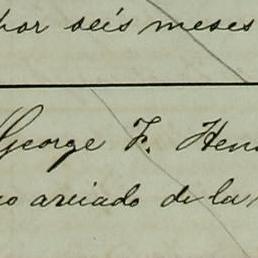 por seis meses
George F. Hen
de la